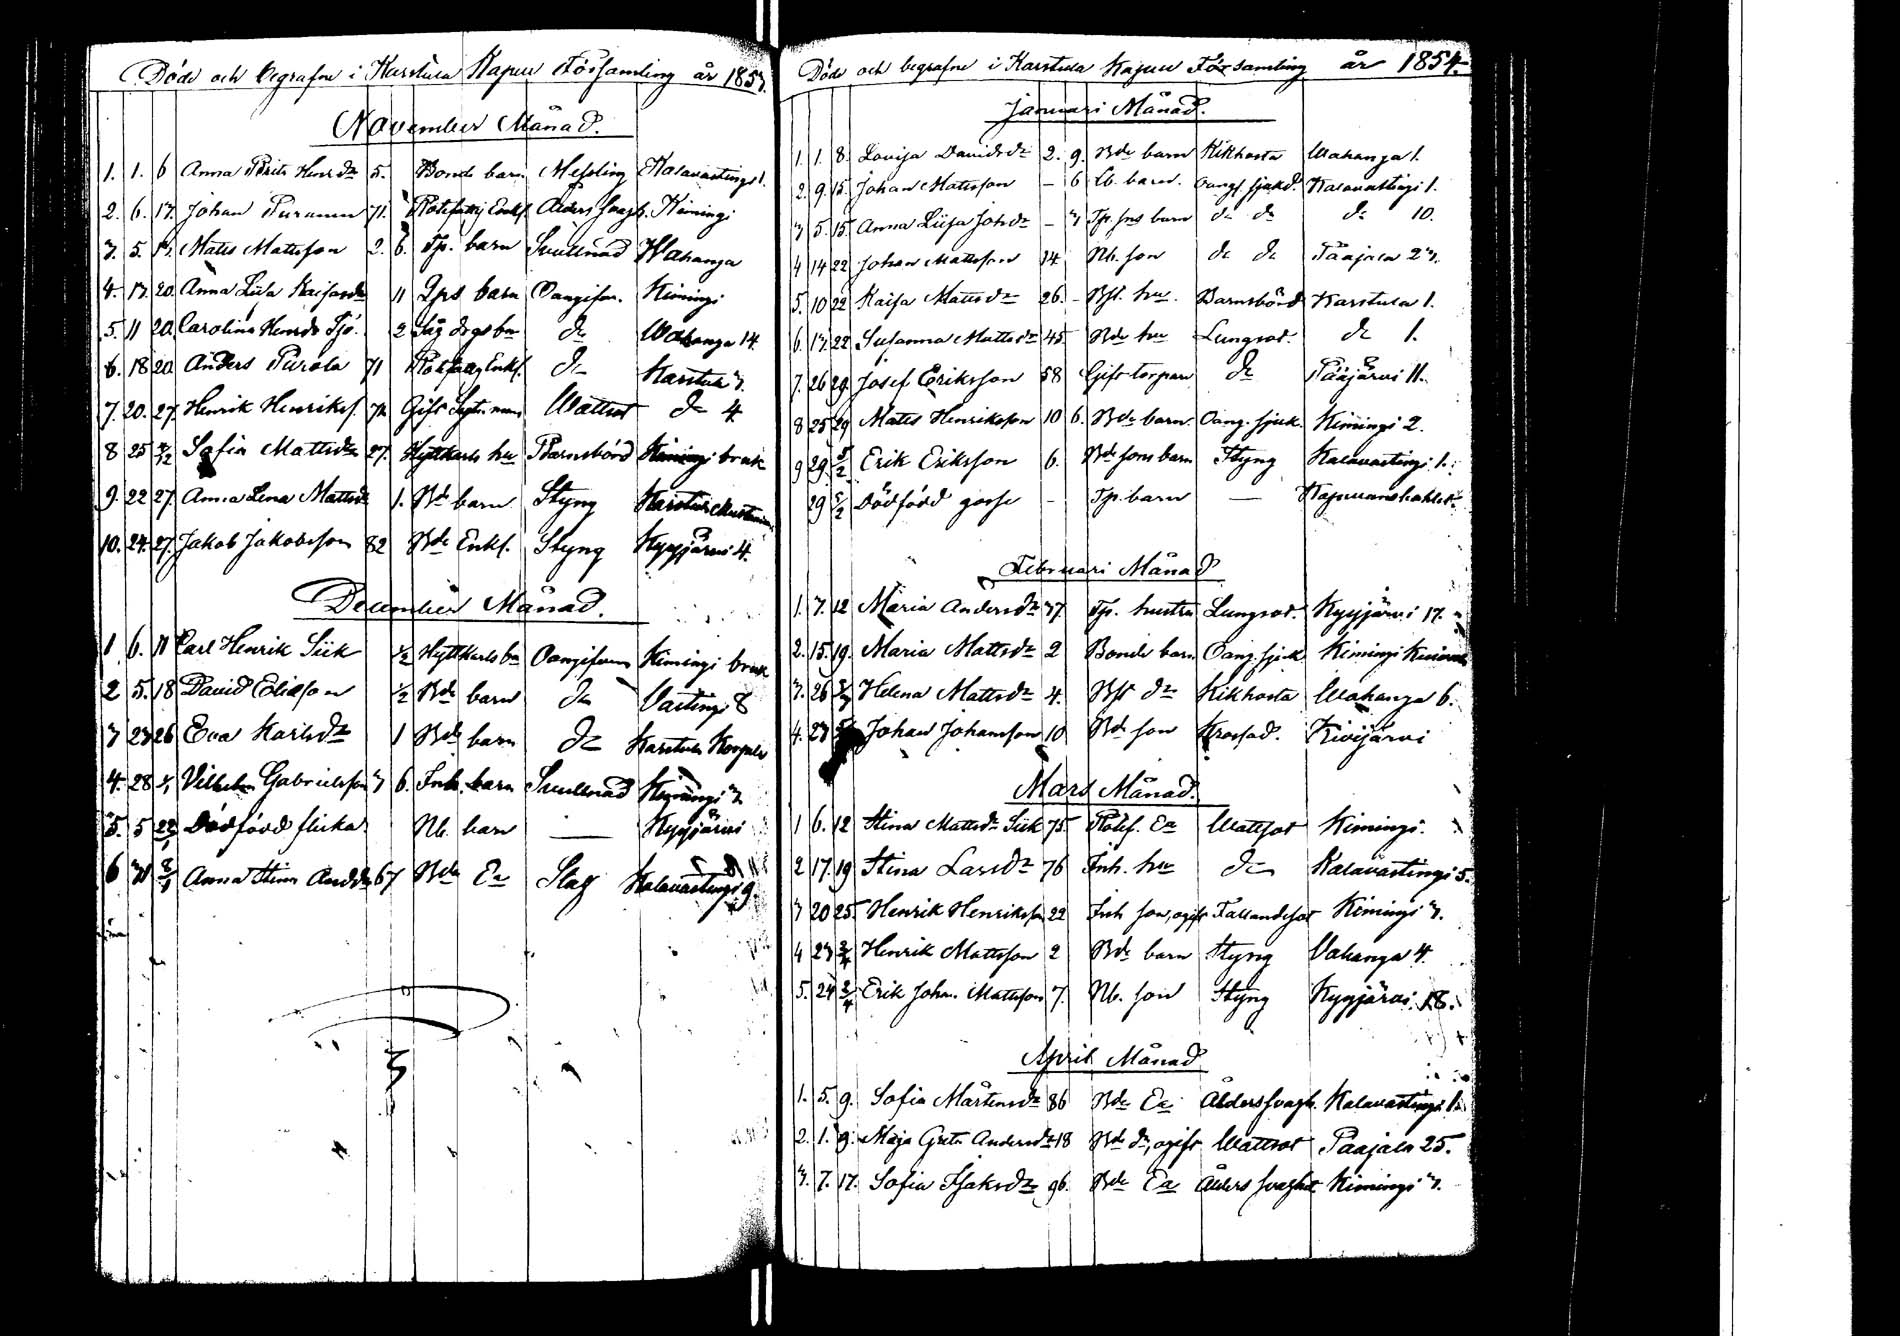 Döde och begrafne i Karstula Kapell Församling år 1853.
November Månad.
1. 1. 6 Anna Brita Henrdr 5. Bonde barn Messling Kalavastinge 1.
2. 6. 13. Johan Puranen 71. Rotefattig Enkl. Ålders svagh. Kimingi
3. 5. 13. Matts Mattsson 2. 6. Tp. barn Svullnad Wahanga
4. 13. 20. Anna Lisa Kaisasdr 11 Qps barn Oangifven. Kimingi
5. 11 20. Carolina Henrdr Sjö. 2 Såg drgs bn dr Wahanga 14.
6. 18 20. Anders Purola 71 Rotfattig Enkl. dr Karstula 3.
7. 20. 27. Henrik Henriks. 72 Gift Sytn. man Wattsot dr 4
8 25 4/12 Sofia Mattsdr 27. Hyttkarls hu Barnsbörd Kimingi bruk
9. 22 27. Anna Lena Mattsdr 1. Bde barn Styng Karstula
10. 24. 27. Jakob Jakobsson 82 Bde Enkl. Styng Kyyjärvi 4.
December Månad.
1 6. 11 Carl Henrik Siik 1/2 Hyttkarls bn Oangifven Kimingi bruk
2 5. 18 David Eliasson 1/2 Bde barn dr Vastinge 8
3 23 26 Eva Karlsdr 1 Bde barn dr Karstula
4. 28 1/1 Vilhelm Gabrielsson 3 6. Inh. barn Svullnad Kimingi 3.
5. 5 22/1 Dödfödd flicka Nb. barn — Kyyjärvi
6 31 8/1 Anna Stina Anddr 67 Bde Ea Slag Kalavastinge 9.
Döde och begrafne i Karstula Kapell Församling år 1854.
Januari Månad.
1. 1. 8. Lovisa Davidsdr 2. 9. Bde barn Kikhosta Wahanga 1.
2. 9. 15. Johan Mattsson – 6 Lb. barn. Oangf. sjukd. Kalavastingi 1.
3 5. 15. Anna Liisa Johdr – 3 Tp. sns barn dr dr dr 10.
4 14 22 Johan Mattsson 14. Nb. son dr dr Pääjala 23.
5. 10 22 Kaisa Mattsdr 26. – Bfl. hu. Barnsbörd Karstula 1.
6. 13. 22 Susanna Mattsdr 45 Bde hu Lungsot. dr 1.
7. 26 29. Josef Eriksson 58 Gift torpare dr Pääjärvi 11.
8 25 29 Matts Henriksson 10 6. Bde barn. Oang. sjuk. Kimingi 2.
9 29 5/2 Erik Eriksson 6. Bde sons barn Styng Kalavastingi 1.
29 5/2 Dödfödd gosse – Tp. barn —
Februari Månad
1. 3. 12 Maria Andersdr 37. Tp. hustru Lungsot. Kyyjärvi 17.
2. 15. 19. Maria Mattsdr 2 Bonde barn Oang. sjuk. Kimingi
3. 26 5/3 Helena Mattsdr 4. Bfl dr Kikhosta Wahanga 6.
4. 23 Johan Johansson 10 Bde son Krossad. Kivijärvi
Mars Månad.
1 6. 12 Stina Mattsdr Siik 75. Rotef. Ea Wattsot Kimingi.
2 17. 19 Stina Larsdr 76 Inh. hu dr Kalavastingi 5.
3 20 25 Henrik Henriksson 22 Inh son, ogift Fallandesot Kimingi 3.
4 23 2/4 Henrik Mattsson 2 Bde barn Styng Vahanga 4.
5. 24 2/4 Erik Johan Mattsson 7. Nb. son Styng Kyyjärvi 18.
April Månad
1. 5. 9. Sofia Mårtensdr 86 Bde Ea Åldersfvagh. Kalavastingi 1.
2. 1. 9. Maja Greta Andersdr 18 Bde dr, ogift Wattsot Pääjala 25.
3. 7. 17. Sofia Isaksdr 96. Bde Ea Ålders svaghet Kimingi 3.